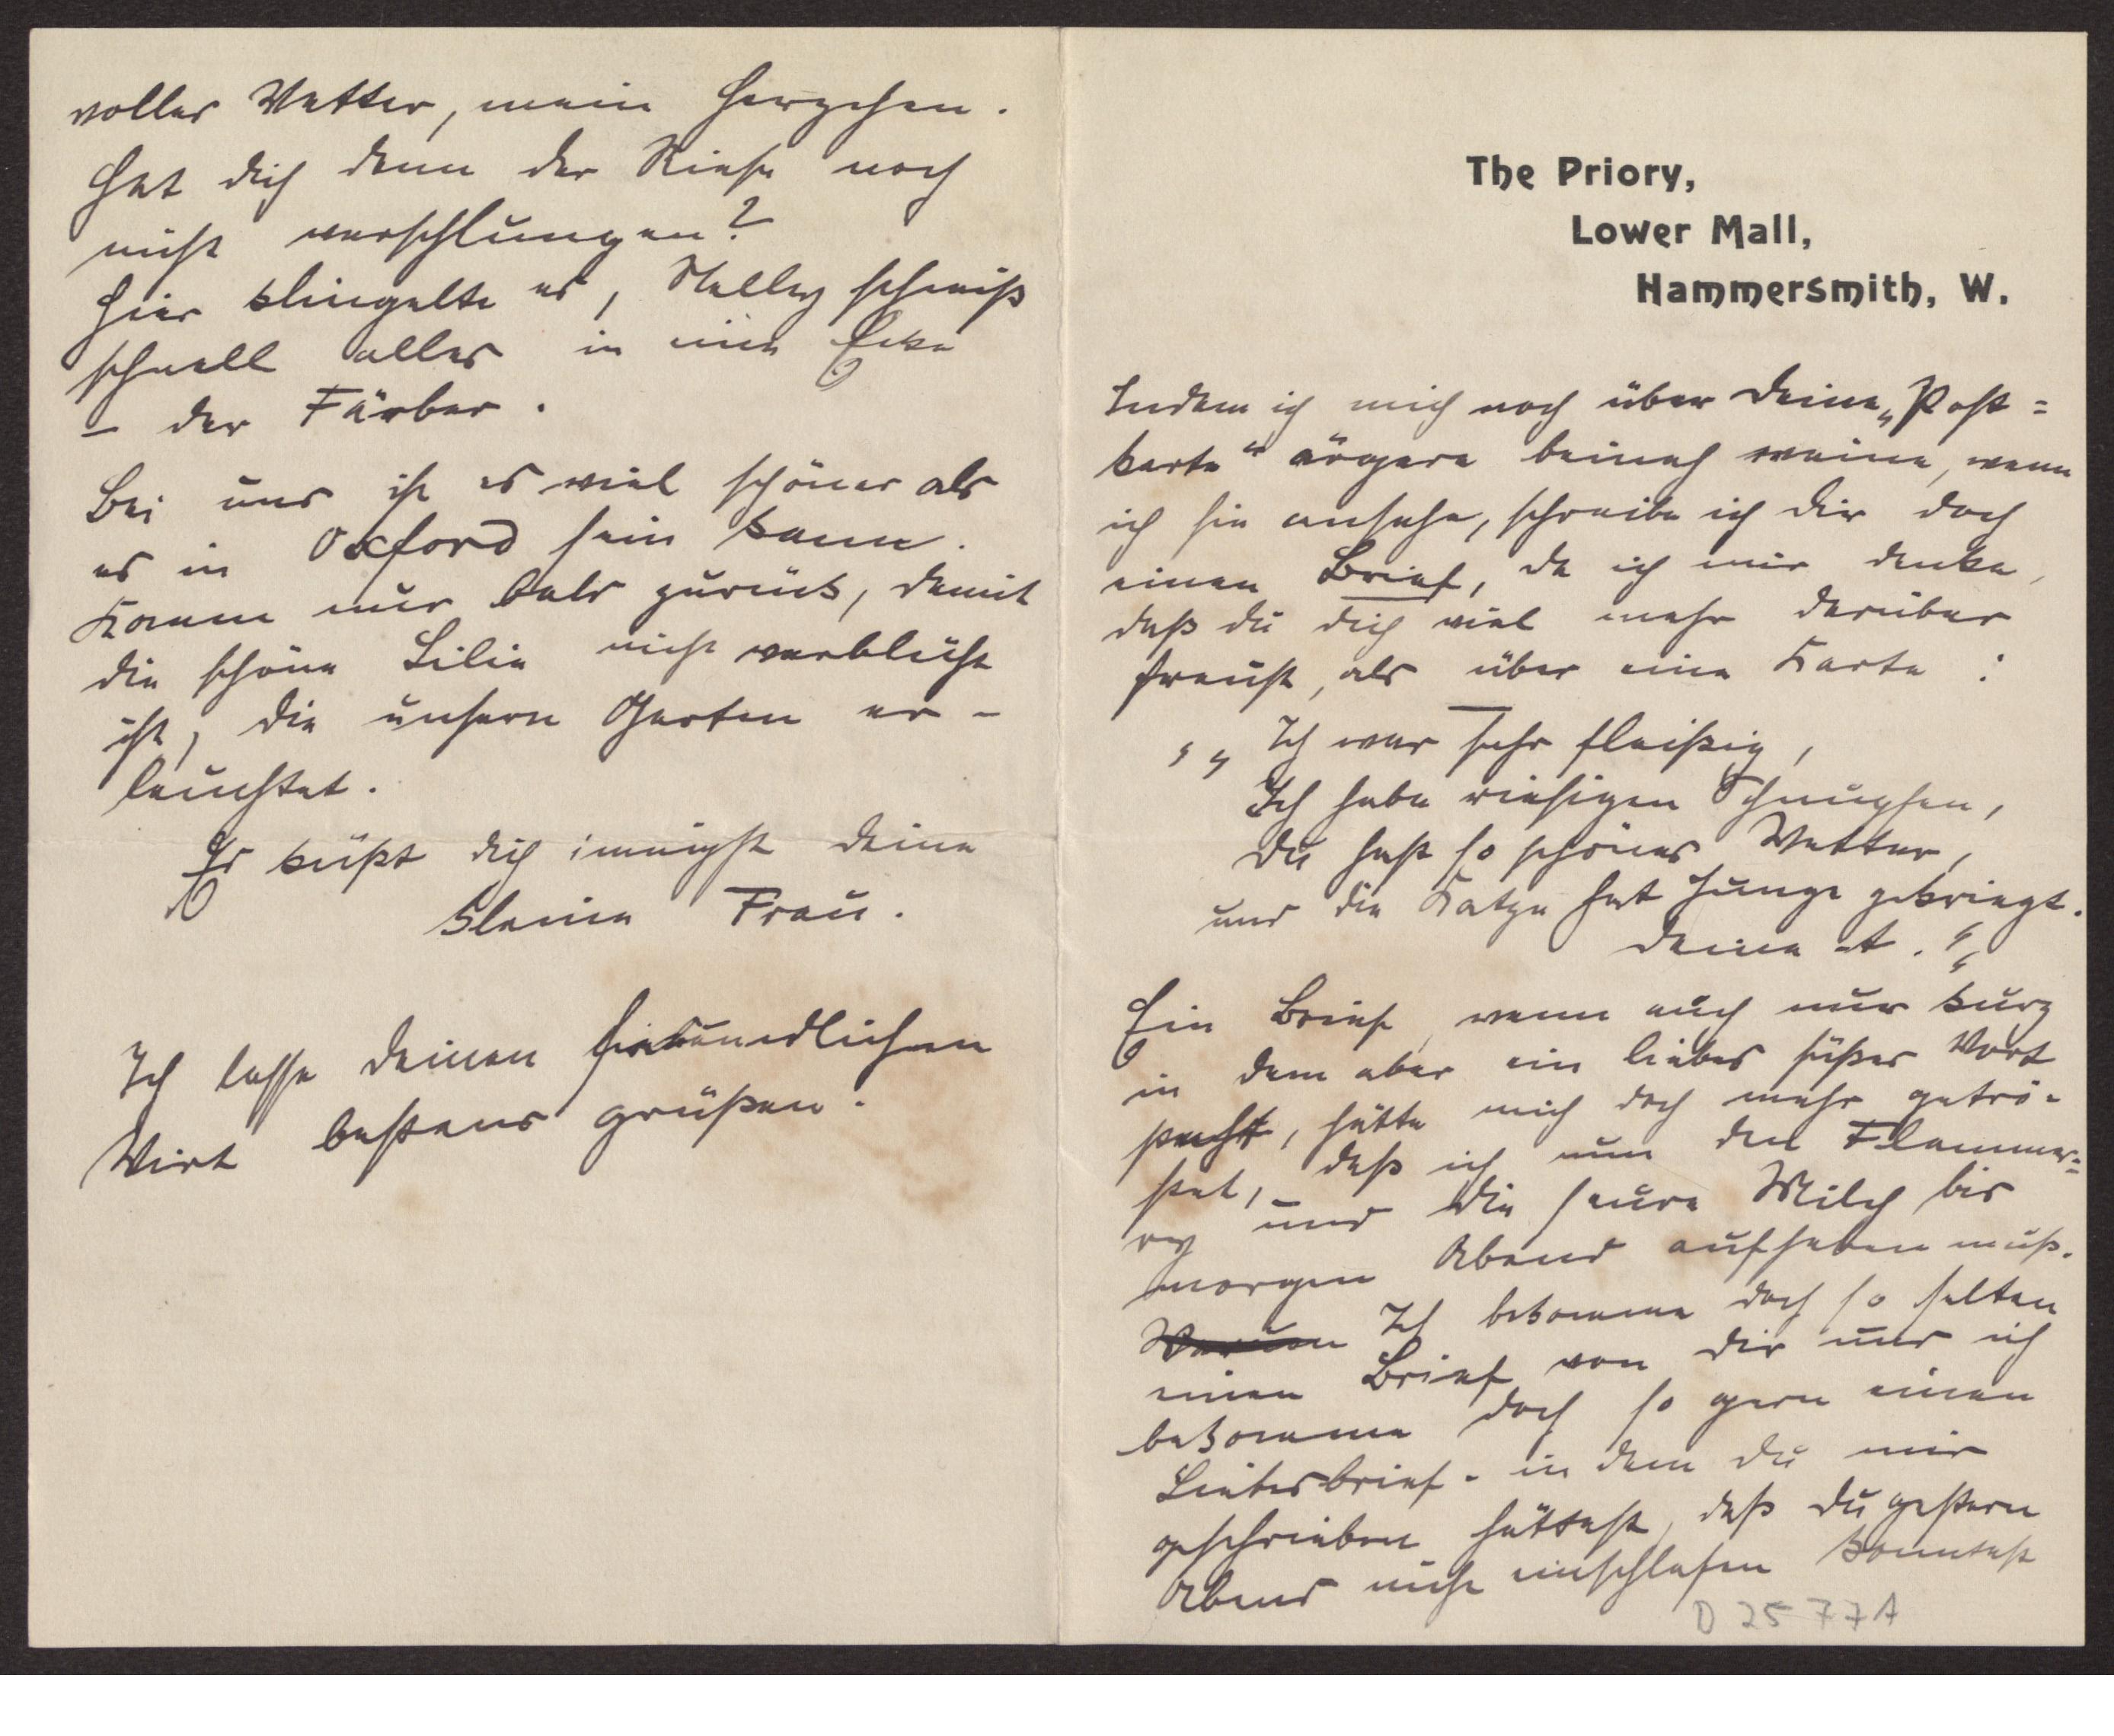 The Priory,
Lower Mall,
Hammersmith, W.
Indem ich mich noch über Deine „Post=
karte“ ärgere beinah weine, wenn
ich sie ansehe, schreibe ich Dir doch
einen Brief, da ich mir denke,
daß du dich viel mehr darüber
freust, als über eine Karte:
„„Ich war sehr fleißig,
Ich habe riesigen Schnupfen,
Du hast so schönes Wetter,
und die Katze hat Junge gekriegt.
Deine A.“
Ein Brief, wenn auch nur kurz
in dem aber ein liebes süßes Wort
, hätte mich doch mehr getrö-
stet, daß ich nun den Flammer=
ry und die saure Milch bis
morgen Abend aufheben muß.
Warum Ich bekomme doch so selten
einen Brief von dir und ich
bekomme doch so gern einen
Liebesbrief - in dem Du mir
geschrieben hättest, daß Du gestern
Abend nicht einschlafen konntest
D 2577A
voller Wetter, mein Herzchen.
Hat dich denn der Riese noch
nicht verschlungen?
Hier klingelte es, Nelly schmiß
schnell alles in eine Ecke
– der Färber.
Bei uns ist es viel schöner als
es in Oxford sein kann.
Komm nur bald zurück, damit
die schöne Lilie nicht verblüht
ist, die unsern Garten er-
leuchtet.
Es küßt dich innigst deine
kleine Frau.
Ich lasse Deinen freundlichen
Wirt bestens grüßen.